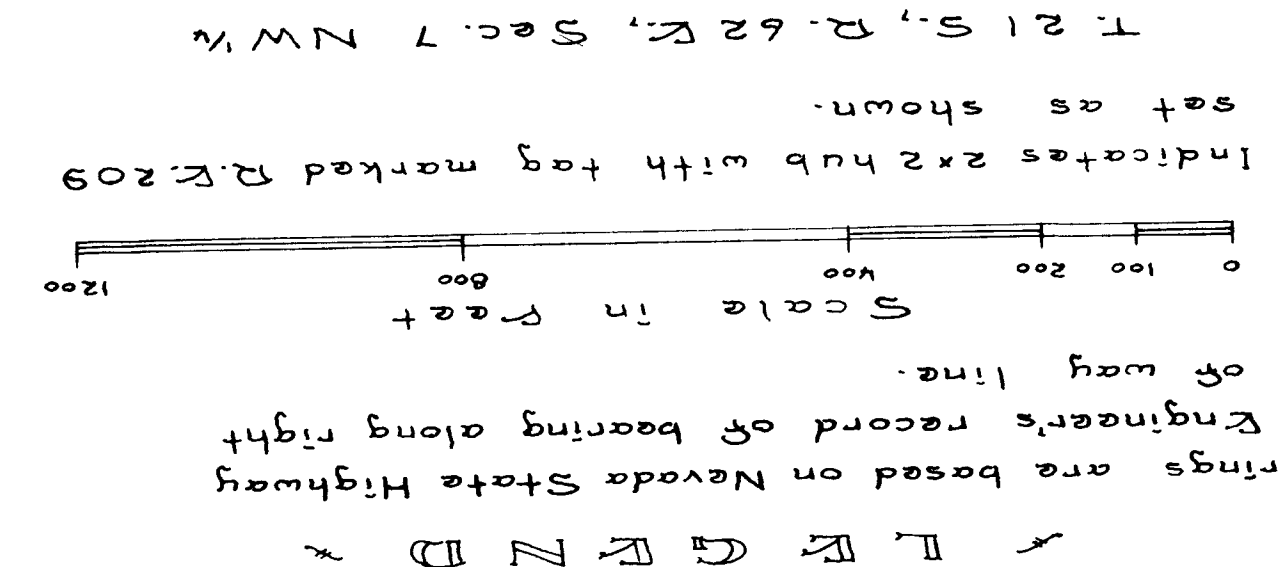 * LEGEND *
rings are based on Nevada State Highway
Engineer's record of bearing along right
of way line.
Scale in Feet
0 100 200 400 800 1200
Indicates 2x2 hub with tag marked R.E. 209
set as shown.
T. 21 S., R. 62 E., Sec. 7 NW 1/4